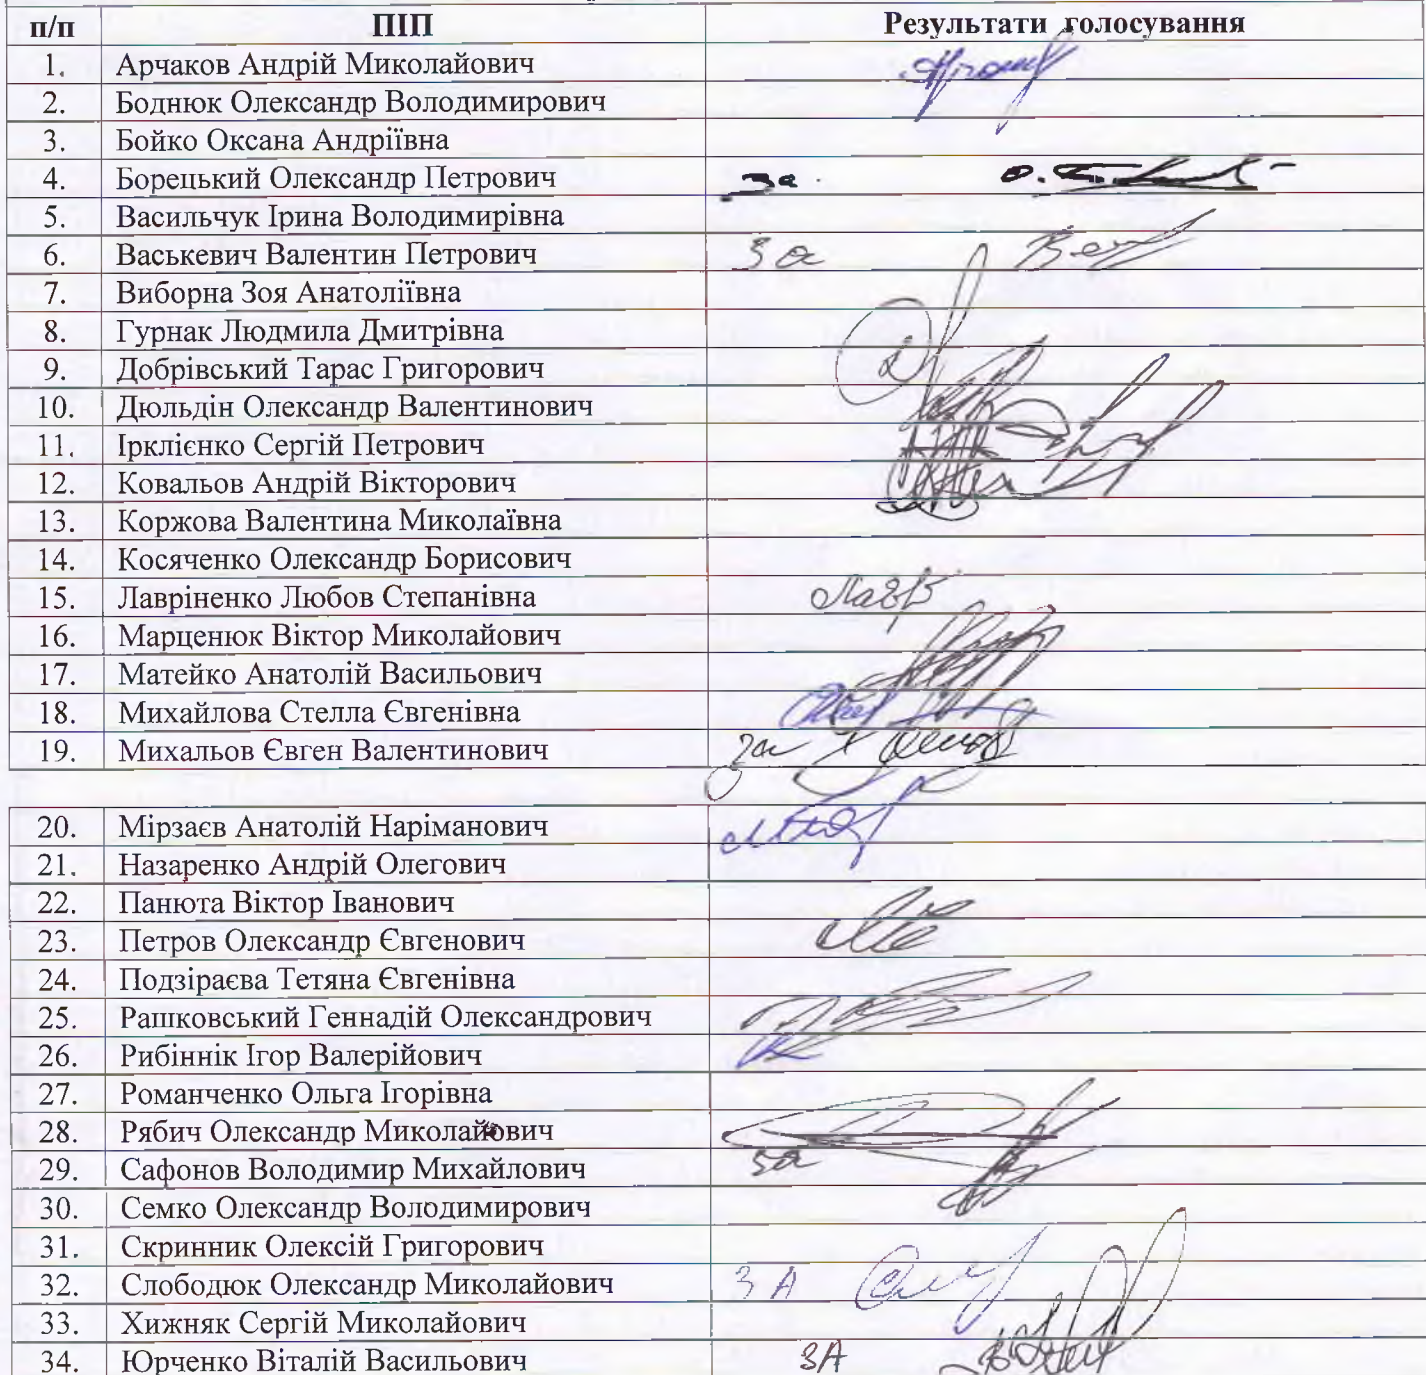 п/п ПІП Результати голосування
1. Арчаков Андрій Миколайович
2. Боднюк Олександр Володимирович
3. Бойко Оксана Андріївна
4. Борецький Олександр Петрович за
5. Васильчук Ірина Володимирівна
6. Васькевич Валентин Петрович за
7. Виборна Зоя Анатоліївна
8. Гурнак Людмила Дмитрівна
9. Добрівський Тарас Григорович
10. Дюльдін Олександр Валентинович
11. Ірклієнко Сергій Петрович
12. Ковальов Андрій Вікторович
13. Коржова Валентина Миколаївна
14. Косяченко Олександр Борисович
15. Лавріненко Любов Степанівна
16. Марценюк Віктор Миколайович
17. Матейко Анатолій Васильович
18. Михайлова Стелла Євгенівна
19. Михальов Євген Валентинович за
20. Мірзаєв Анатолій Наріманович
21. Назаренко Андрій Олегович
22. Панюта Віктор Іванович
23. Петров Олександр Євгенович
24. Подзіраєва Тетяна Євгенівна
25. Рашковський Геннадій Олександрович
26. Рибіннік Ігор Валерійович
27. Романченко Ольга Ігорівна
28. Рябич Олександр Миколайович
29. Сафонов Володимир Михайлович за
30. Семко Олександр Володимирович
31. Скринник Олексій Григорович
32. Слободюк Олександр Миколайович ЗА
33. Хижняк Сергій Миколайович
34. Юрченко Віталій Васильович ЗА